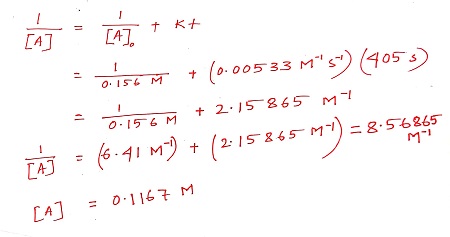 1/[A] = 1/[A]₀ + Kt
= 1/0.156 M + (0.00533 M⁻¹ s⁻¹) (405 s)
= 1/0.156 M + 2.15865 M⁻¹
1/[A] = (6.41 M⁻¹) + (2.15865 M⁻¹) = 8.56865 M⁻¹
[A] = 0.1167 M